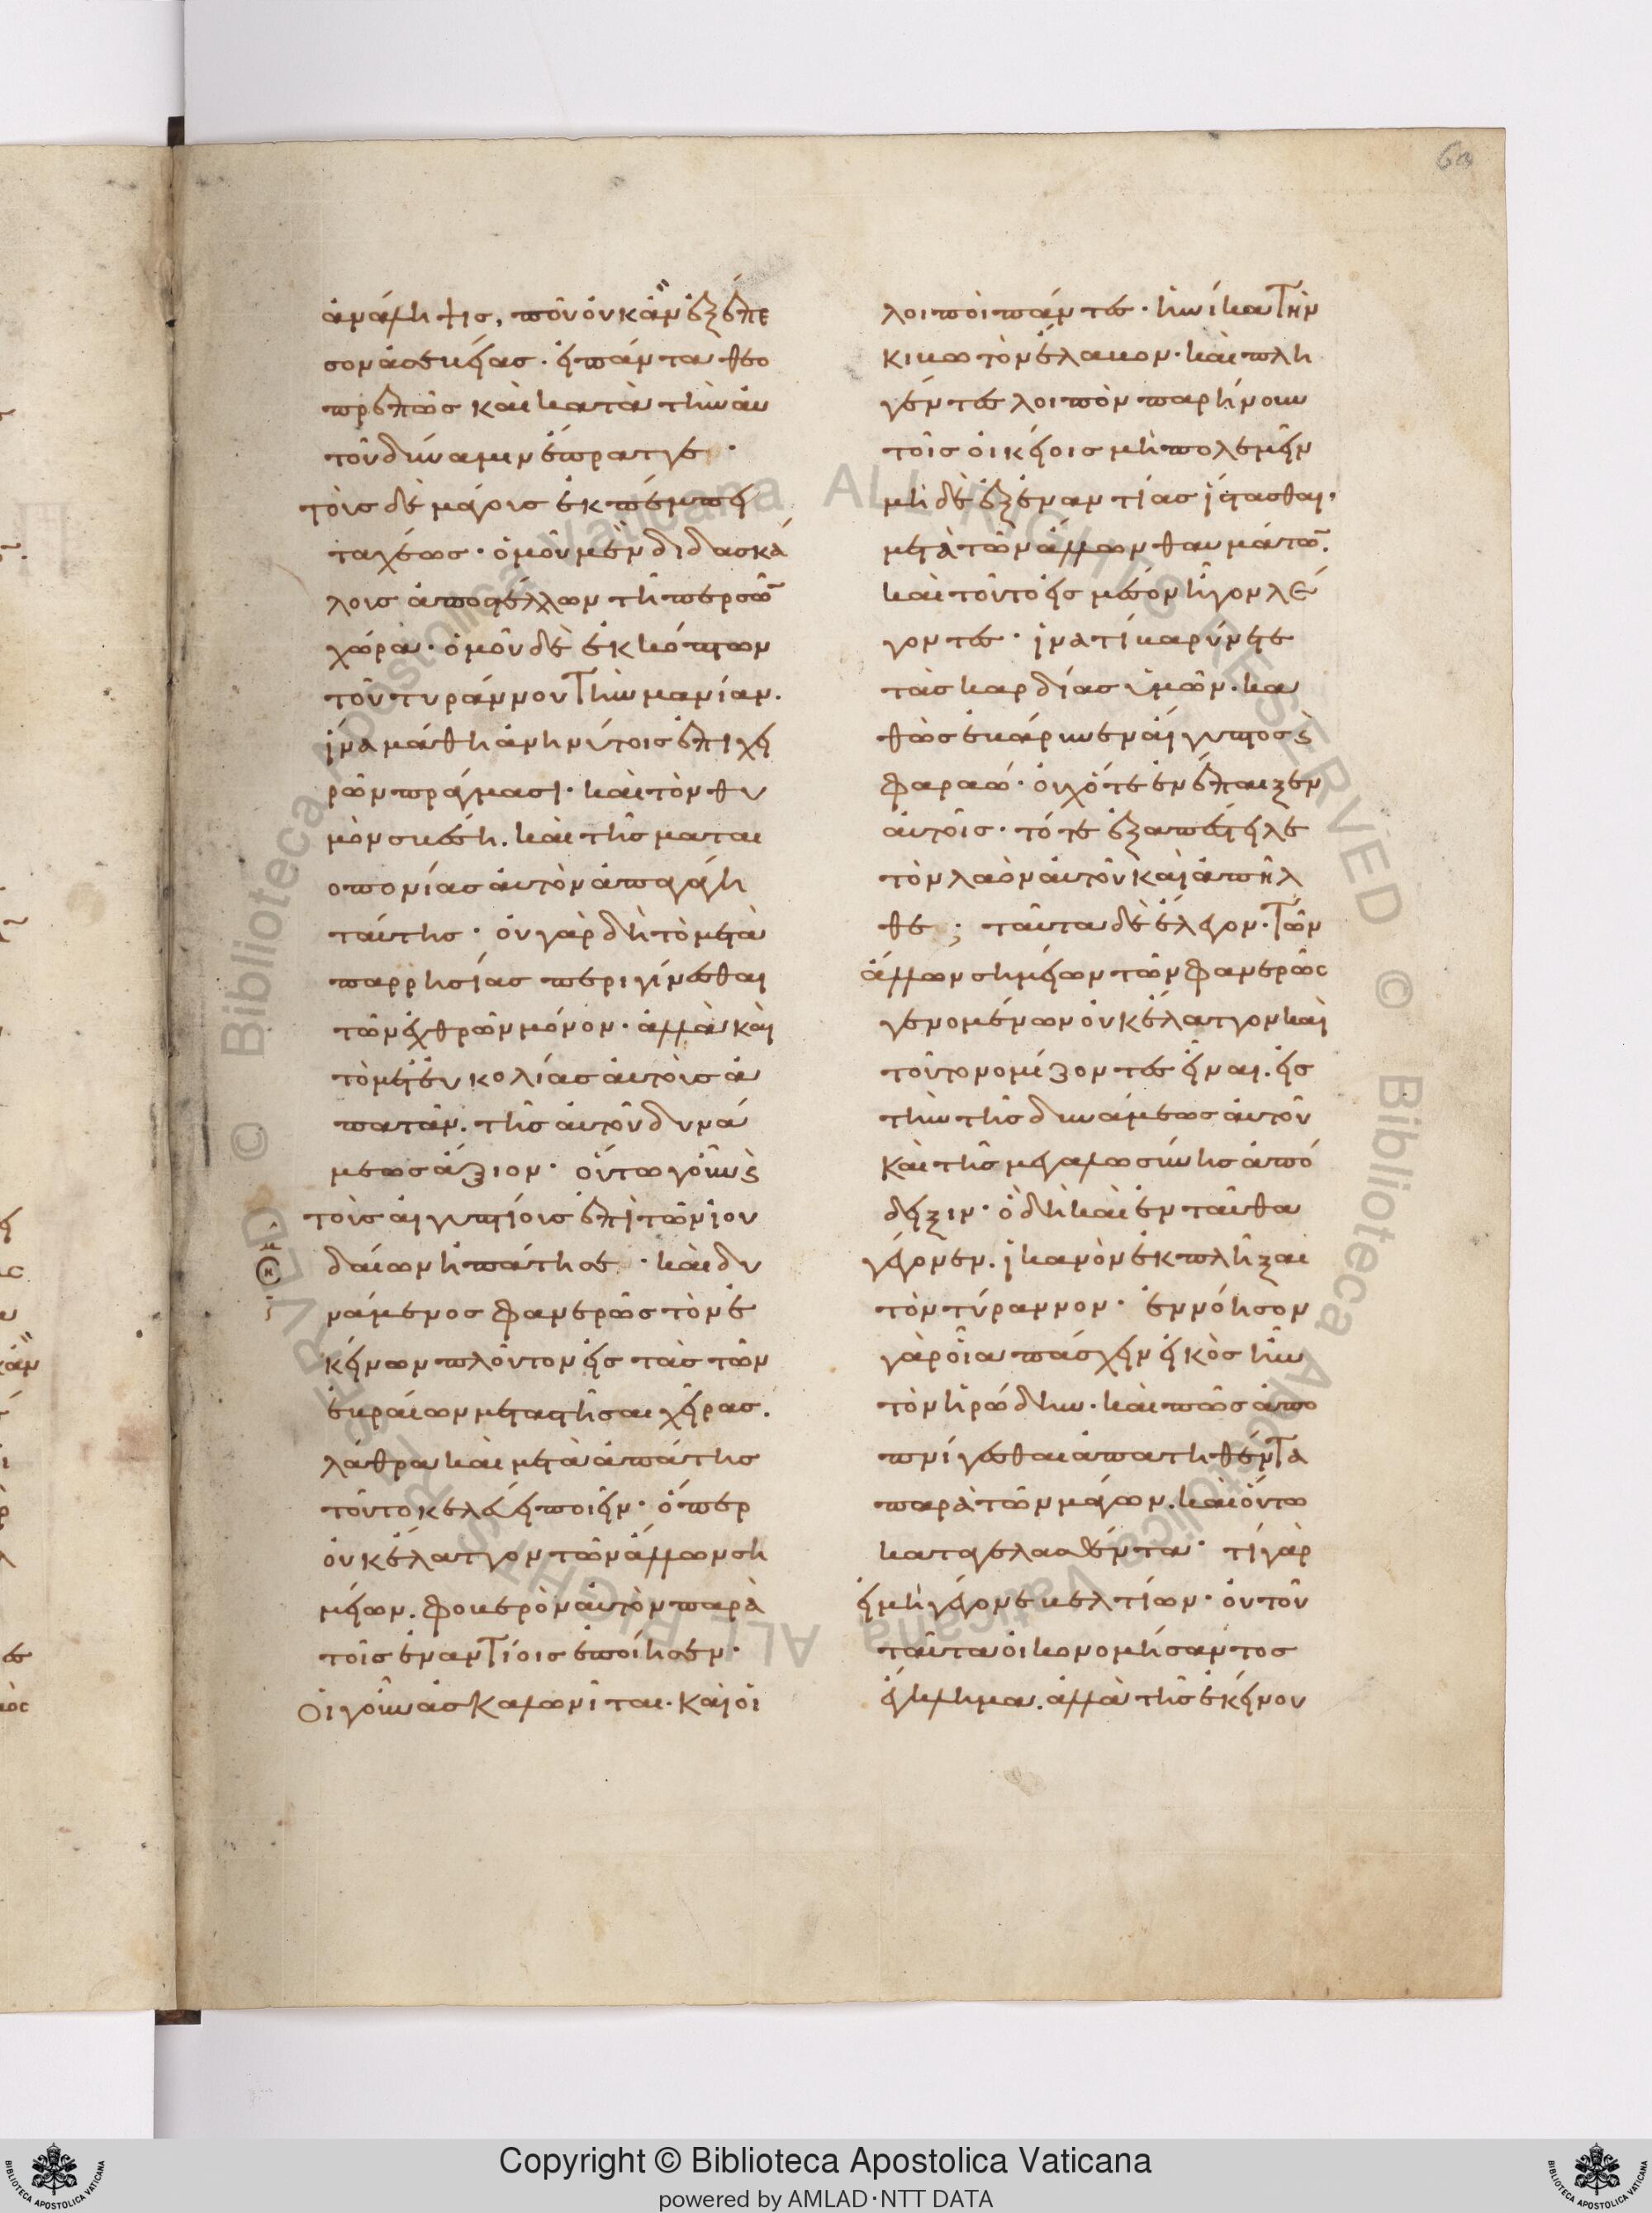 ἀνάληψις, ποῦ οὐκ ἂν ἐξέπε
σον ἀσεβείας. εἰ πάντα θεο
πρεπῶς καὶ κατὰ τὴν αὐ
τοῦ δύναμιν ἔπραττε·
τοὺς δὲ μάγους ἐκπέμπει
ταχέως· ὁμοῦ μὲν διδασκά
λους ἀποστέλλων τῆ περσῶ̅
χώρα· ὁμοῦ δὲ ἐκκόπτων
τοῦ τυράννου τὴν μανίαν.
ἵνα μάθη ἀνηνύτοις ἐπιχει
ρῶν πράγμασι· καὶ τὸν θυ
μὸν σβέση. καὶ τῆς ματαϊ
οπονίας αὐτὸν ἀπαγάγη
ταύτης· οὐ γὰρ δὴ τὸ μετὰ
παρρησίας περιγίνεσθαι
τῶν ἐχθρῶν μόνον· ἀλλὰ καὶ
τὸ μετ' εὐκολίας αὐτοὺς ἀ
πατᾶν. τῆς αὐτοῦ δυνά
μεως ἄξιον· οὕτω γοῦν ϗ
τοὺς αἰγυπτίους ἐπὶ τῶν ἰου
δαίων ἠπάτησε· καὶ δυ
νάμενος φανερῶς τὸν ἐ
κείνων πλοῦτον εἰς τὰς τῶν
ἑβραίων μεταστῆσαι χεῖρας.
λάθρα καὶ μετὰ ἀπάτης
τοῦτο κελεύει ποιεῖν· ὅπερ
οὐκ ἔλαττον τῶν ἄλλων ση
μείων. φοβερὸν αὐτὸν παρὰ
τοῖς ἐναντίοις ἐποίησεν·
Οἱ γοῦν ἀσκαλωνῖται· καὶ οἱ
λοιποὶ πάντες· ἡνίκα τὴν
κιβωτὸν ἔλαβον· καὶ πλη
γέντες λοιπὸν παρήνουν
τοῖς οἰκείοις μὴ πολεμεῖν
μὴ δὲ ἐξ ἐναντίας ἵστασθαι·
μετὰ τῶν ἄλλων θαυμάτω̅.
καὶ τοῦτο εἰς μέσον ἦγον λέ
γοντες· ἱνατί βαρύνετε
τὰς καρδίας ὑμῶν. κα
θὼς ἐβάρυνεν αἴγυπτος ϗ
φαραώ· οὐχ ὅτε ἐνέπαιξεν
αὐτοῖς· τότε ἐξαπέστειλε
τὸν λαὸν αὐτοῦ καὶ ἀπῆλ
θε; ταῦτα δὲ ἔλεγον· τῶν
ἄλλων σημείων τῶν φανερῶς
γενομένων οὐκ ἔλαττον καὶ
τοῦτο νομίζοντες εἶναι. εἰς
τὴν τῆς δυνάμεως αὐτοῦ
καὶ τῆς μεγαλωσύνης ἀπό
δειξιν· ὃ δὴ καὶ ἐνταῦθα
γέγονεν. ἱκανὸν ἐκπλῆξαι
τὸν τύραννον· ἐννόησον
γὰρ οἷα πάσχειν εἰκὸς ἦν
τὸν ἡρώδην· καὶ πῶς ἀπο
πνίγεσθαι ἀπατηθέντα
παρὰ τῶν μάγων. καὶ οὕτω
καταγελασθέντα· τί γὰρ
εἰ μὴ γέγονε βελτίων· οὐ τοῦ
ταῦτα οἰκονομήσαντος
ἔγκλημα. ἀλλὰ τῆς ἐκείνου
Copyright © Biblioteca Apostolica Vaticana
powered by AMLAD·NTT DATA